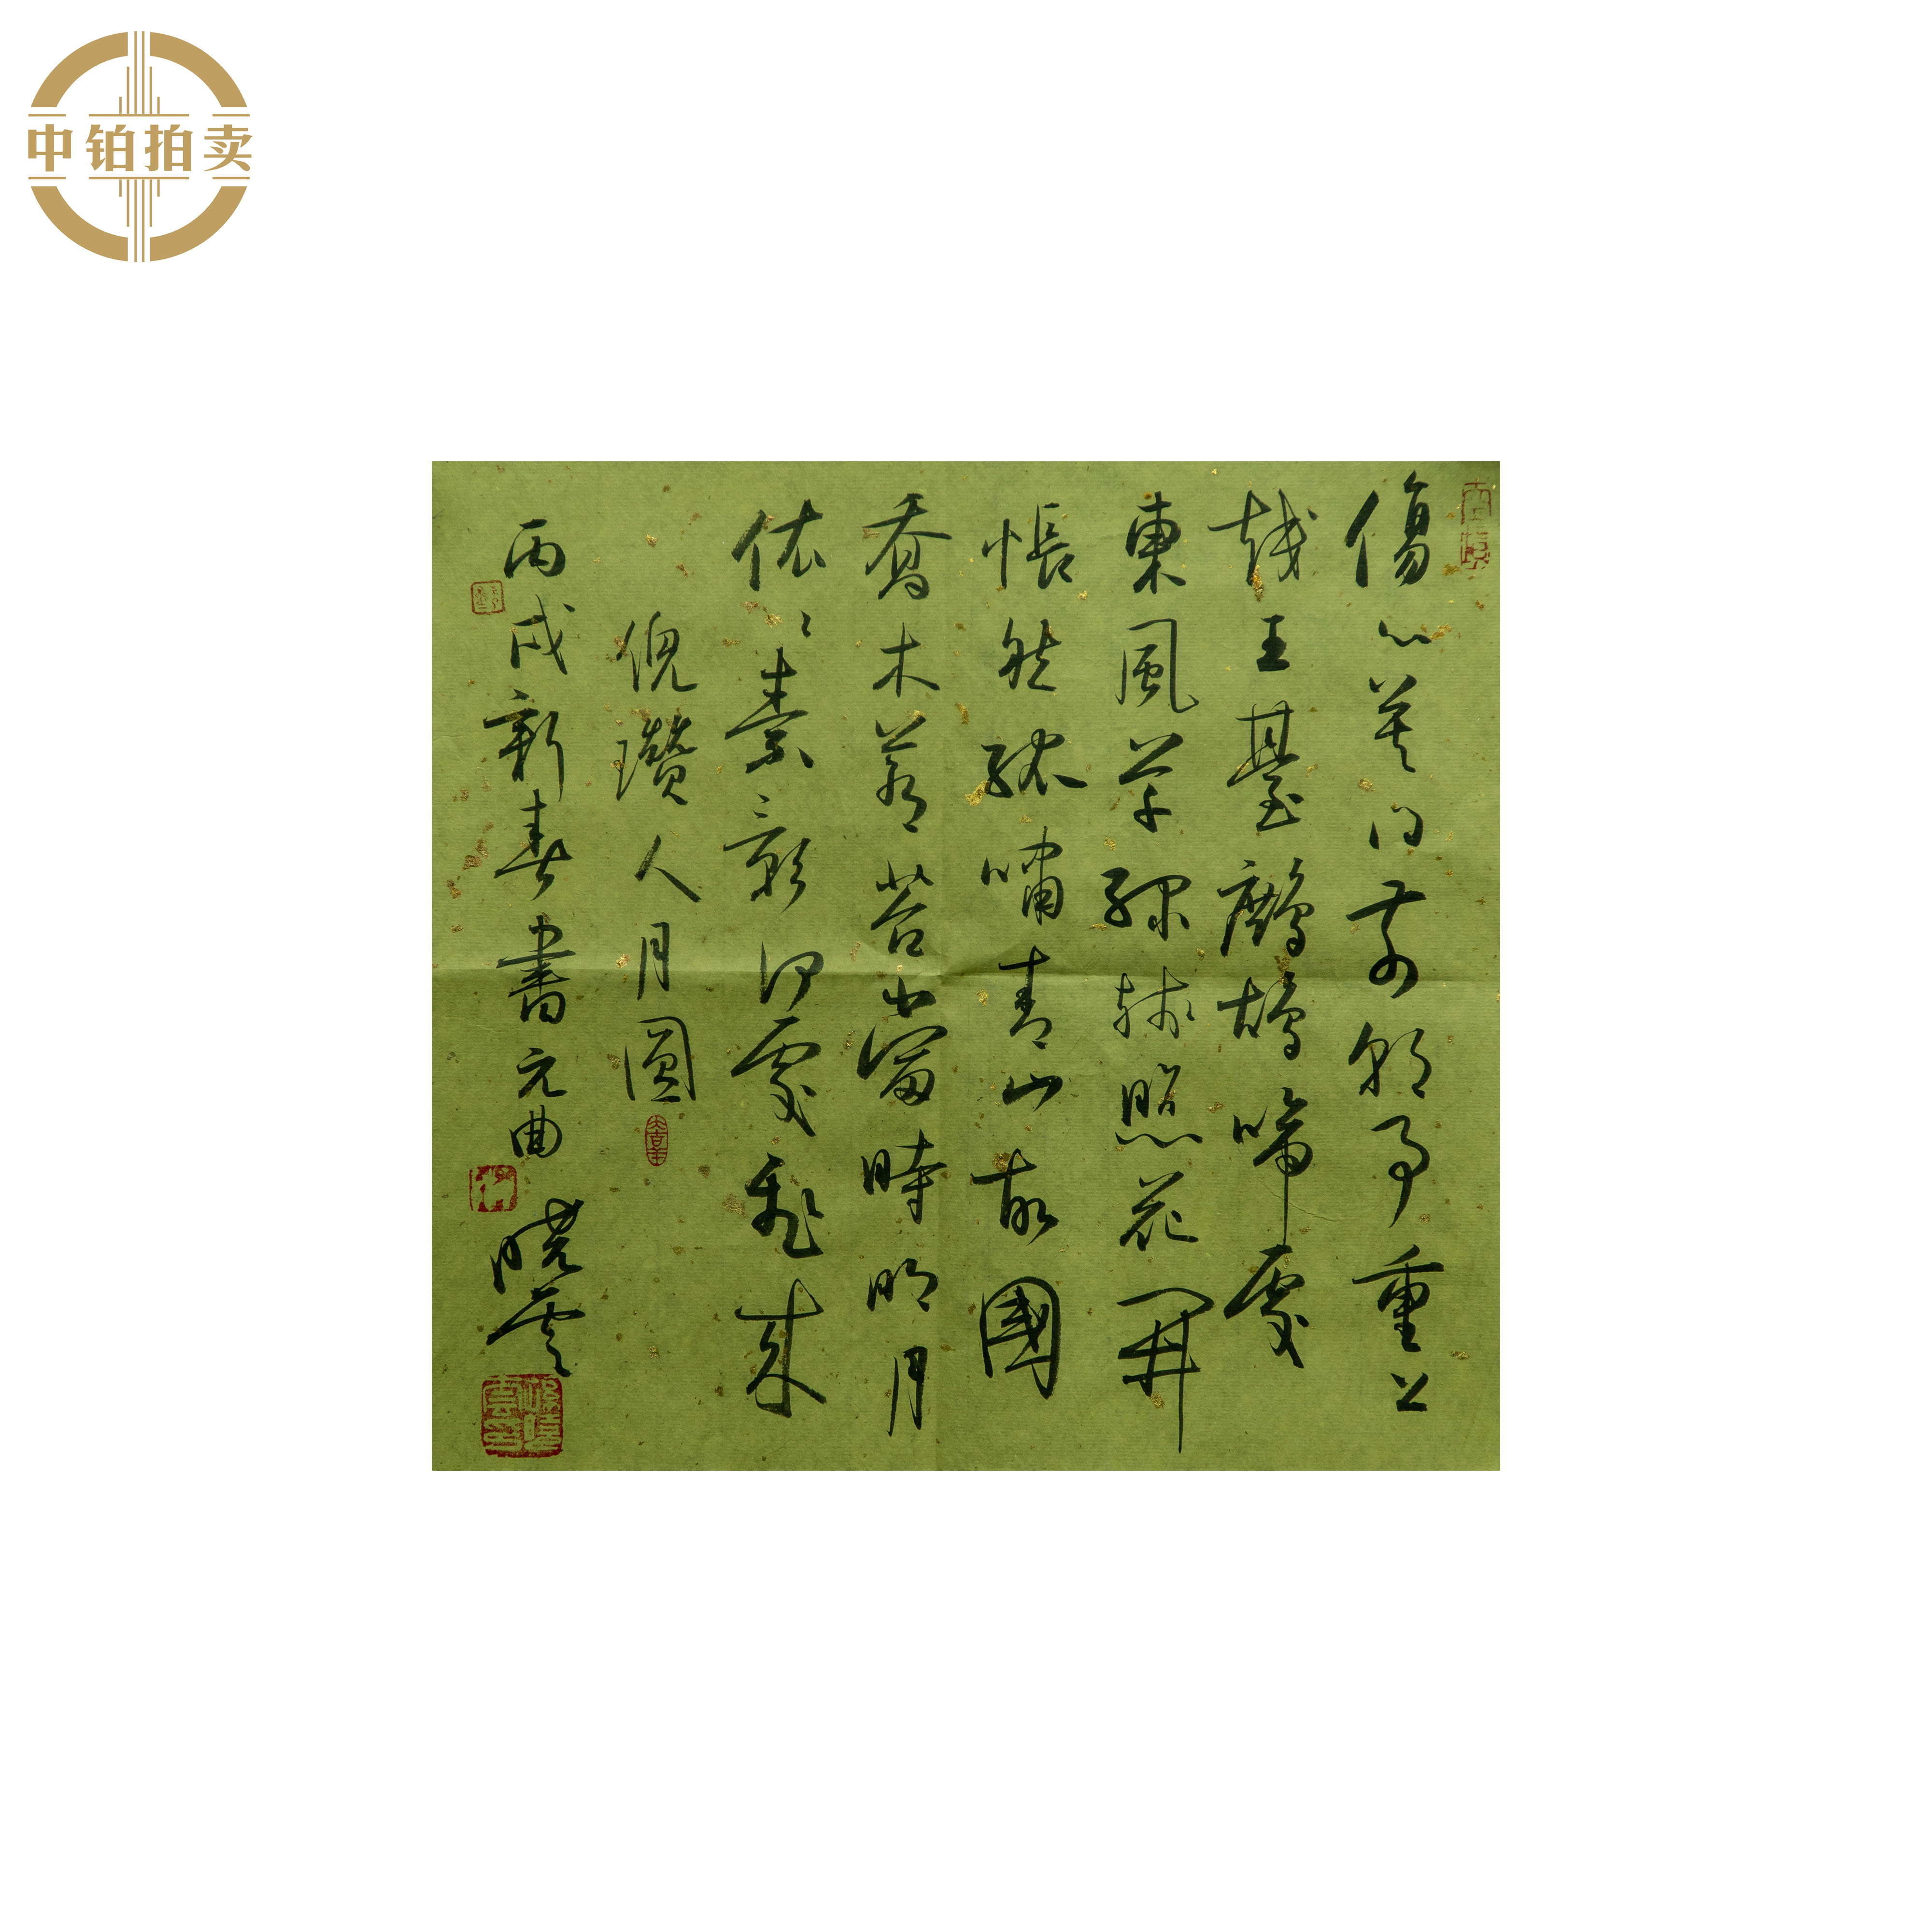 中铂拍卖
傷心莫问前朝事重上
越王臺鷓鴣啼處
東風草緑殘照花開
悵然孤嘯青山故國
喬木蒼苔當時明月
依〻素影何處飛來
倪瓚人月圓
丙戌新春書元曲 曉雲